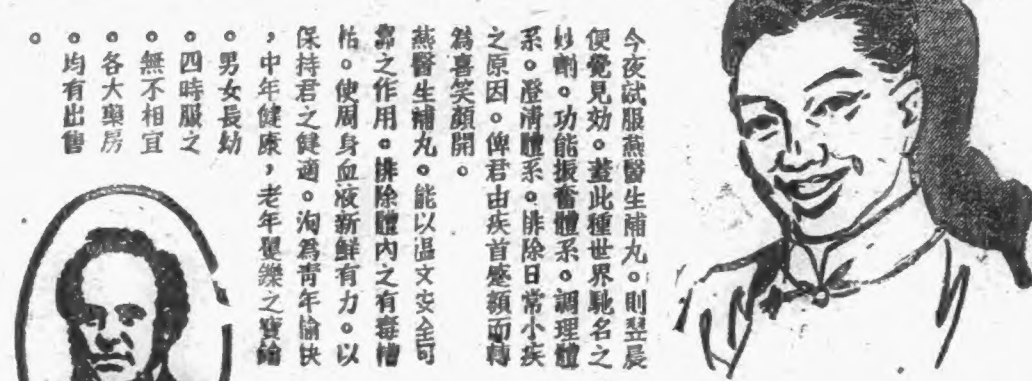 今夜試服燕醫生補丸。則翌晨
便覺見効。蓋此種世界馳名之
妙劑。功能振奮體系。調理體
系。澄清體系。排除日常小疾
之原因。俾君由疾首蹙額而轉
為喜笑顏開。
燕醫生補丸。能以溫文安全可
靠之作用。排除體內之有毒糟
粕。使周身血液新鮮有力。以
保持君之健適。洵為青年愉快
，中年健康，老年矍鑠之寶鑰
。男女長幼
。四時服之
。無不相宜
。各大藥房
。均有出售
。